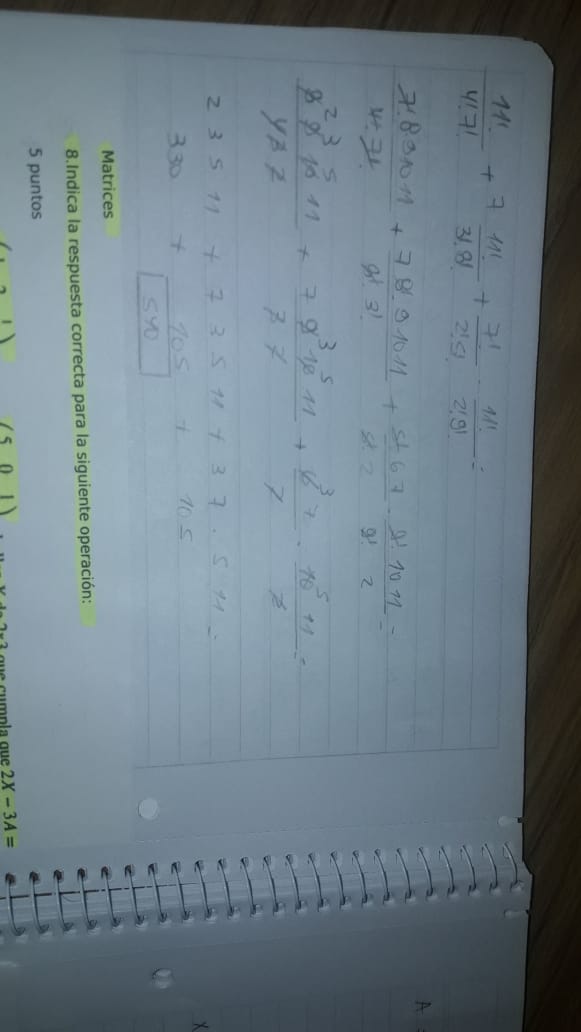 11!/4!7! + 7 11!/3!8! + 7!/2!5! · 11!/2!9! =
7!·8·9 10 11/4!·7! + 7 8!·9 10 11/8!·3! + 5! 6 7/5!·2 · 9! 10 11/9! 2 =
2 3 5
8 9 10 11/4 3 2 + 7 9 3 10 5 11/3 2 + 6 3 7/2 · 10 5 11/2 =
2 3 5 11 + 7 3 5 11 + 3 7 · 5 11 =
330 + 105 + 105
540
Matrices
8.Indica la respuesta correcta para la siguiente operación:
5 puntos
(5 0 1) que cumpla que 2X − 3A =
A
X